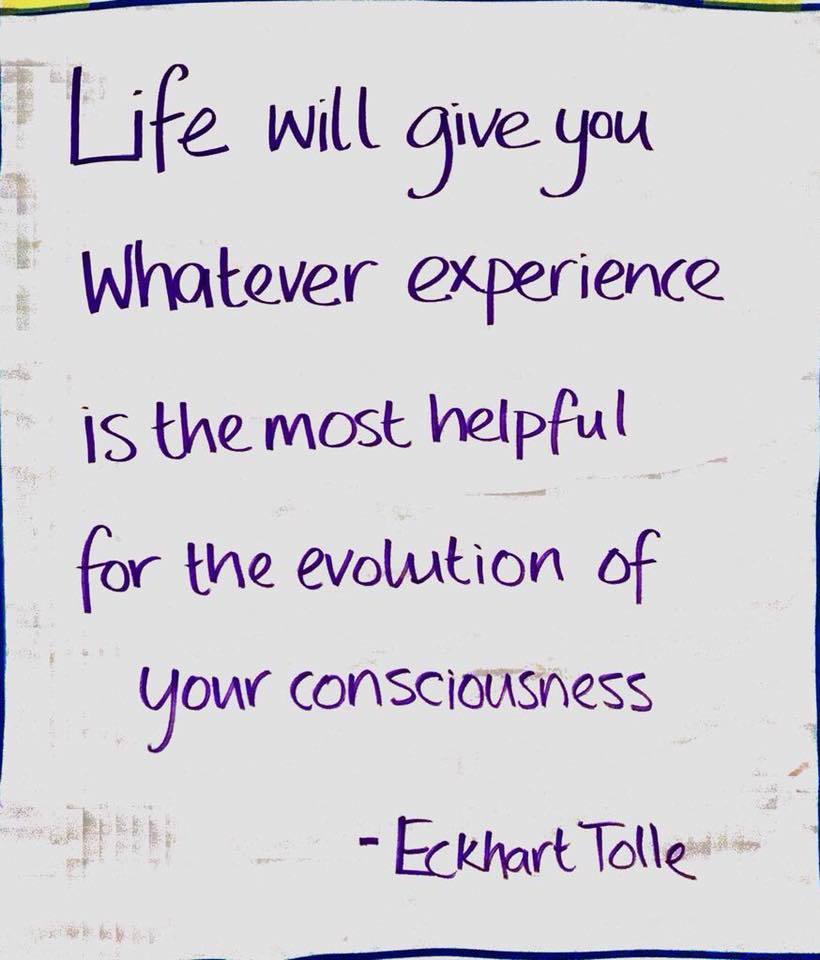 Life will give you
Whatever experience
is the most helpful
for the evolution of
your consciousness
- Eckhart Tolle